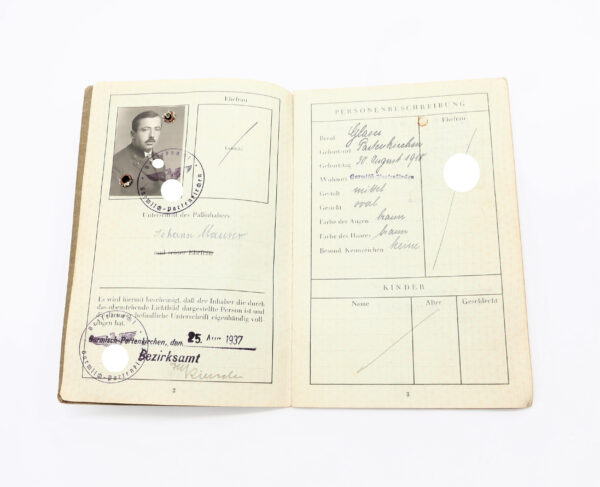 Ehefrau
Unterschrift des Paßinhabers
Johann Mauser
und seiner Ehefrau
Es wird hiermit bescheinigt, daß der Inhaber die durch
das obenstehende Lichtbild dargestellte Person ist und
die darunter befindliche Unterschrift eigenhändig voll-
zogen hat.
Garmisch-Partenkirchen
Garmisch-Partenkirchen, den 25. Aug. 1937
Bezirksamt
2
PERSONENBESCHREIBUNG
Ehefrau
Beruf
Geburtsort Partenkirchen
Geburtstag 30. August
Wohnort Garmisch-Partenkirchen
Gestalt mittel
Gesicht oval
Farbe der Augen braun
Farbe des Haares braun
Besond. Kennzeichen keine
KINDER
Name Alter Geschlecht
3